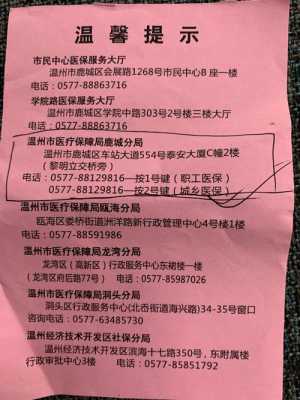 温馨提示
市民中心医保服务大厅
温州市鹿城区会展路1268号市民中心B 座一楼
电话：0577-88863716
学院路医保服务大厅
温州市鹿城区学院中路303号2号楼三楼大厅
电话：0577-88863716
温州市医疗保障局鹿城分局
温州市鹿城区车站大道554号泰安大厦C幢2楼
（黎明立交桥旁）
电话：0577-88129816—按1号键（职工医保）
0577-88129816—按2号键（城乡医保）
温州市医疗保障局瓯海分局
瓯海区娄桥街道洲洋路新行政管理中心4号楼1楼
电话：0577-88591986
温州市医疗保障局龙湾分局
龙湾区（高新区）行政服务中心东裙楼一楼
（龙湾区府后路77号） 电话：0577-85987026
温州市医疗保障局洞头分局
洞头区行政服务中心(北岙街道海兴路)34-35号窗口
咨询电话：0577-63485730
温州经济技术开发区社保分局
温州经济技术开发区滨海十七路350号，东附属楼
行政审批中心3楼 电话：0577-85851792